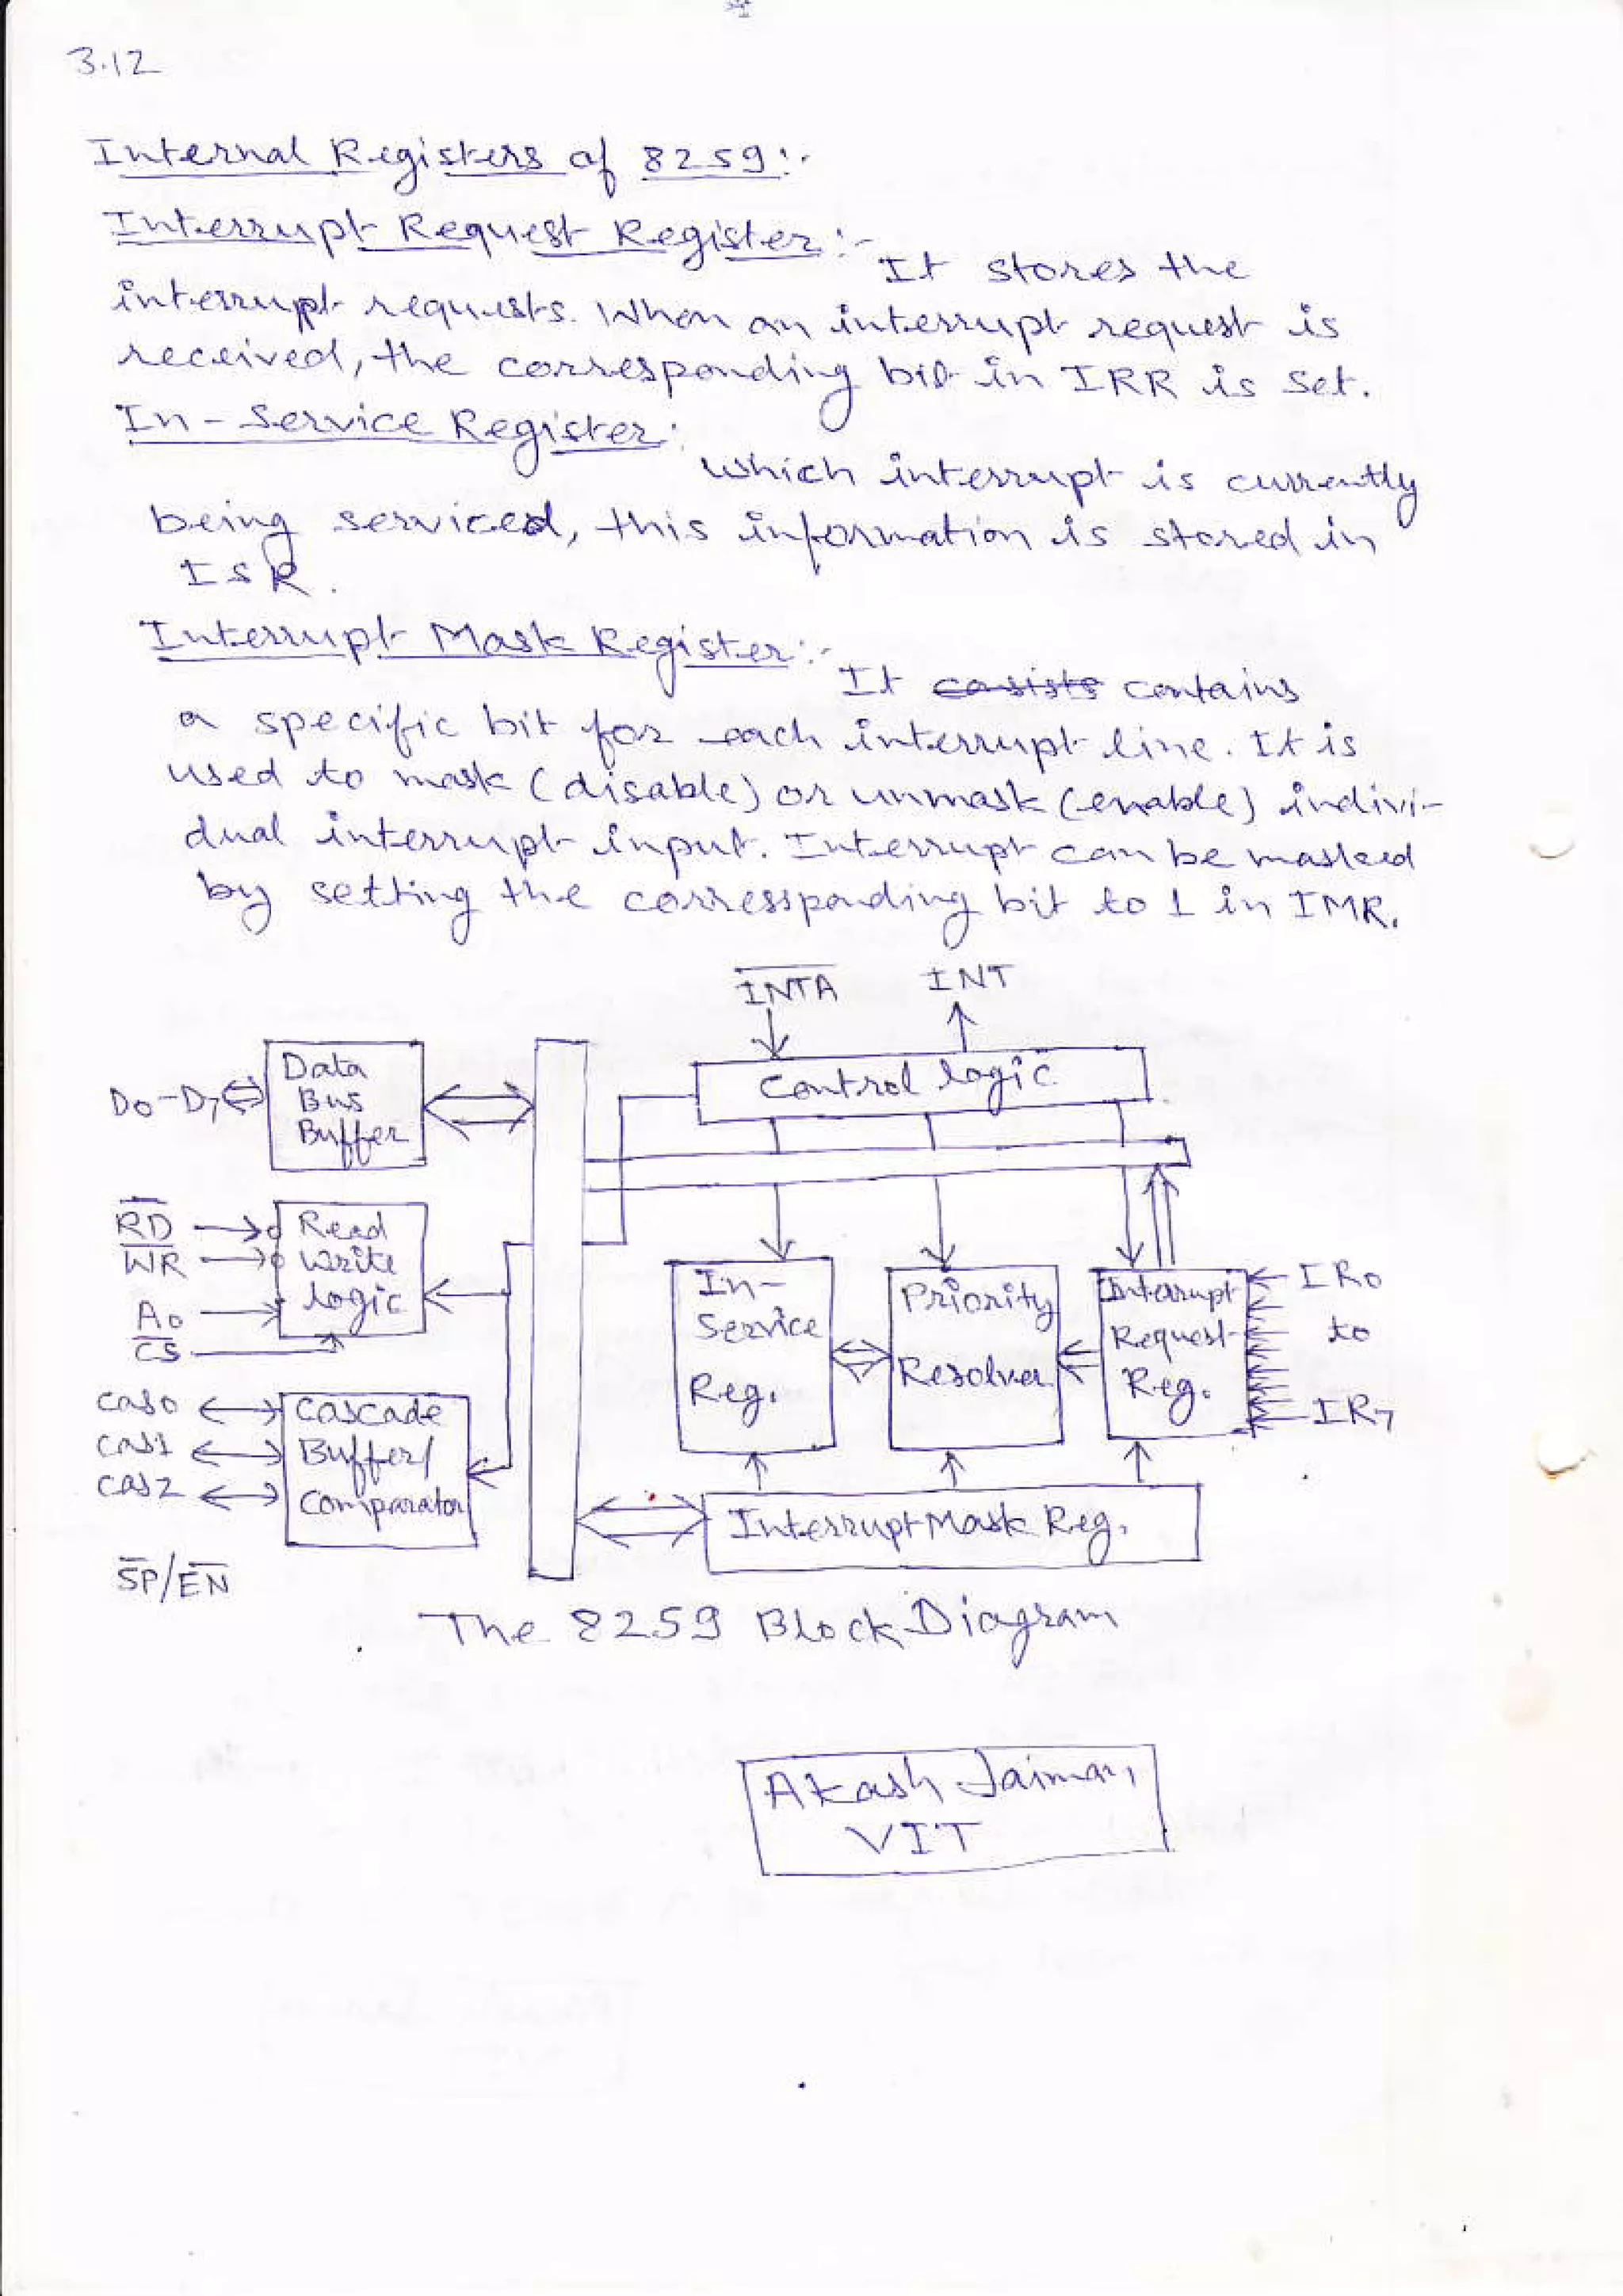 3.12
Internal Registers of 8259:-
Interrupt Request Register:- It stores the
interrupt requests. When an interrupt request is
received, the corresponding bit in IRR is set.
In-Service Register: which interrupt is currently
being serviced, this information is stored in
ISR.
Interrupt Mask Register:- It cosists contains
a specific bit for each interrupt line. It is
used to mask (disable) or unmask (enable) indivi-
dual interrupt input. Interrupt can be masked
by setting the corressponding bit to 1 in IMR.
I̅N̅T̅A̅ INT
Control logic
D0-D7
Data
Bus
Buffer
R̅D̅
W̅R̅
A0
C̅S̅
Read
Write
logic
Cas0
Cas1
Cas2
Cascade
Buffer/
Comparator
S̅P̅/E̅N̅
In-
Service
Reg.
Priority
Resolver
Interrupt
Request
Reg.
IR0
to
IR7
Interrupt Mask Reg.
The 8259 Block Diagram
Akash Jaiman,
VIT